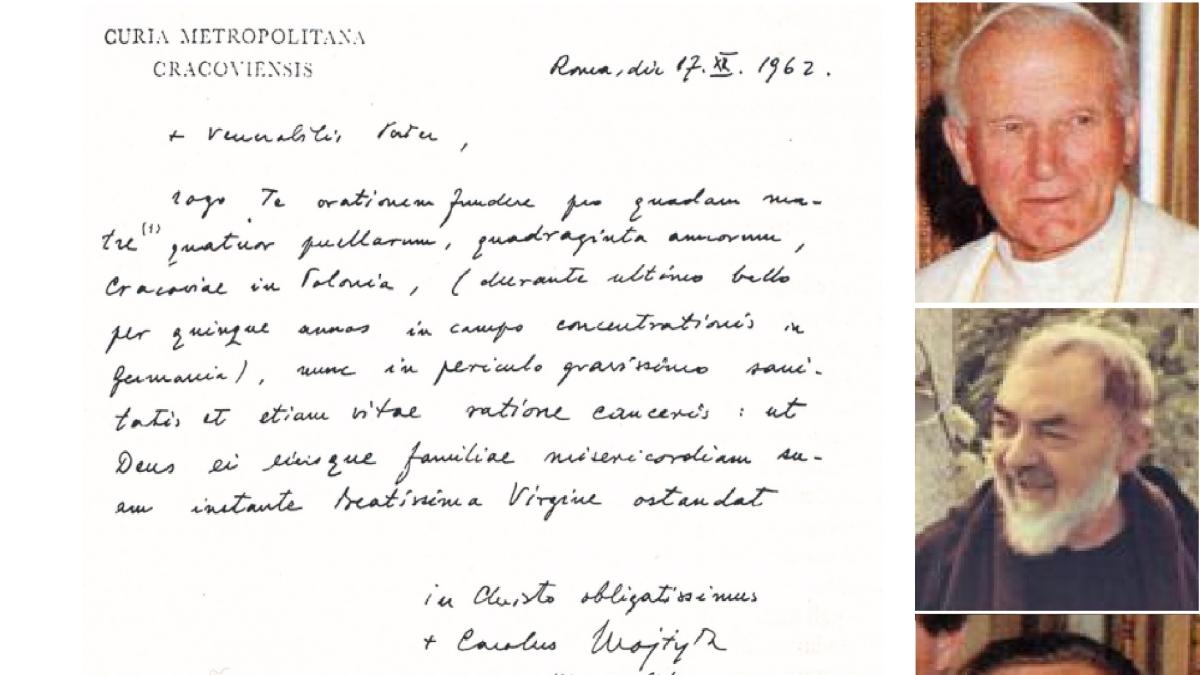 CURIA METROPOLITANA
CRACOVIENSIS
Roma, die 17. XI. 1962.
+ Venerabilis Pater,
rogo Te orationem fundere pro quadam ma-
tre (1) quatuor puellarum, quadraginta annorum,
Cracoviae in Polonia, (durante ultimo bello
per quinque annos in campo concentrationis in
Germania), nunc in periculo gravissimo sani-
tatis et etiam vitae ratione canceris: ut
Deus ei eiusque familiae misericordiam su-
am instante Beatissima Virgine ostendat
in Christo obligatissimus
+ Carolus Wojtyła